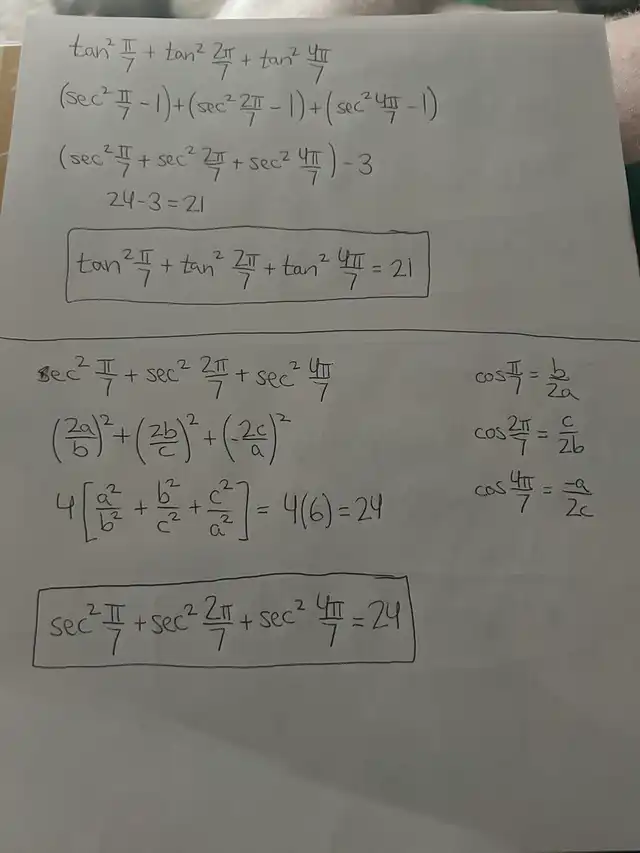 tan² π/7 + tan² 2π/7 + tan² 4π/7
(sec² π/7 - 1) + (sec² 2π/7 - 1) + (sec² 4π/7 - 1)
(sec² π/7 + sec² 2π/7 + sec² 4π/7) - 3
24 - 3 = 21
tan² π/7 + tan² 2π/7 + tan² 4π/7 = 21
sec² π/7 + sec² 2π/7 + sec² 4π/7
(2a/b)² + (2b/c)² + (-2c/a)²
4[a²/b² + b²/c² + c²/a²] = 4(6) = 24
cos π/7 = b/2a
cos 2π/7 = c/2b
cos 4π/7 = -a/2c
sec² π/7 + sec² 2π/7 + sec² 4π/7 = 24